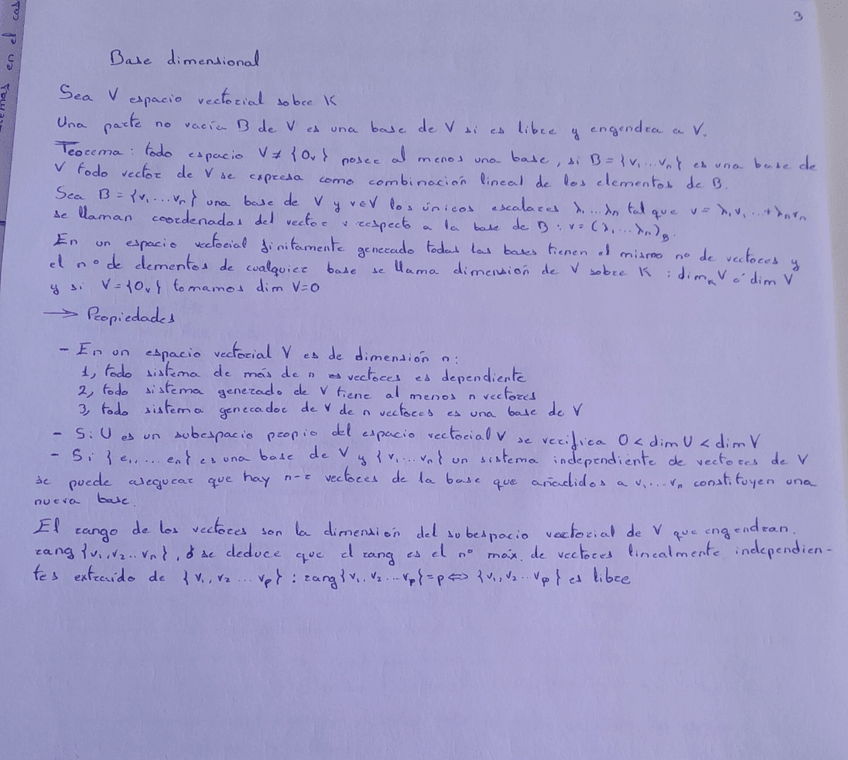 3
emas en el cas
Base dimensional
Sea V espacio vectorial sobre K
Una parte no vacía B de V es una base de V si es libre y engendra a V.
Teorema: todo espacio V ≠ {0v} posee al menos una base, si B = {v, ... vn} es una base de
V todo vector de V se expresa como combinación lineal de los elementos de B.
Sea B = {v, ... vn} una base de V y v∈V los únicos escalares λ, ... λn tal que v = λ, v, ... + λn vn
se llaman coordenadas del vector v respecto a la base de B: v = (λ, ... λn)B
En un espacio vectorial finitamente generado todas las bases tienen el mismo no de vectores y
el nº de elementos de cualquier base se llama dimensión de V sobre K : dimn V ó dim V
y si V = {0v} tomamos dim V=0
→ Propiedades
- En un espacio vectorial V es de dimensión n:
1, todo sistema de más de n vectores es dependiente
2, todo sistema generado de V tiene al menos n vectores
3, todo sistema generador de V de n vectores es una base de V
- Si U es un subespacio propio del espacio vectorial V se verifica 0 < dim U < dim V
- Si {e, ... en} es una base de V y {v, ... vn} un sistema independiente de vectores de V
se puede asegurar que hay n-r vectores de la base que añadidos a v, ... vn constituyen una
nueva base.
El rango de los vectores son la dimensión del subespacio vectorial de V que engendran.
rang {v1, v2 .. vn}, se deduce que el rang es el nº máx. de vectores linealmente independien-
tes extraído de {v1, v2 ... vp} : rang {v1, v2 ... vp} = p ⇔ {v1, v2 .. vp} es libre